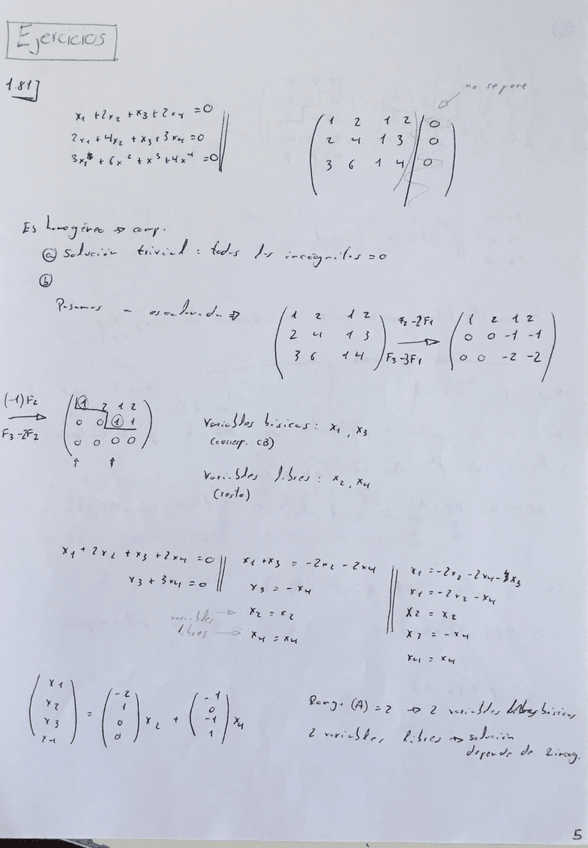 Ejercicios
1.81]
no se pone
x1 + 2x2 + x3 + 2x4 = 0
2x1 + 4x2 + x3 + 3x4 = 0
3x1 + 6x2 + x3 + 4x4 = 0
( 1 2 1 2 | 0 )
( 2 4 1 3 | 0 )
( 3 6 1 4 | 0 )
Es homogéneo ⇒ comp.
ⓐ Solución trivial: todas las incógnitas = 0
ⓑ
Pasamos a escalonada ⇒
( 1 2 1 2 )
( 2 4 1 3 )
( 3 6 1 4 )
F2 - 2F1
→
F3 - 3F1
( 1 2 1 2 )
( 0 0 -1 -1 )
( 0 0 -2 -2 )
(-1)F2
→
F3 - 2F2
( 1 2 1 2 )
( 0 0 1 1 )
( 0 0 0 0 )
↑ ↑
Variables básicas: x1, x3
(corresp. CB)
Variables libres: x2, x4
(resto)
x1 + 2x2 + x3 + 2x4 = 0
x3 + 3x4 = 0
x1 + x3 = -2x2 - 2x4
x3 = -x4
variables → x2 = x2
libres → x4 = x4
x1 = -2x2 - 2x4 - x3
x1 = -2x2 - x4
x2 = x2
x3 = -x4
x4 = x4
( x1 ) = ( -2 ) x2 + ( -1 ) x4
( x2 ) ( 1 ) ( 0 )
( x3 ) ( 0 ) ( -1 )
( x4 ) ( 0 ) ( 1 )
Rango (A) = 2 → 2 variables básicas
2 variables libres → solución
depende de 2 incog.
5